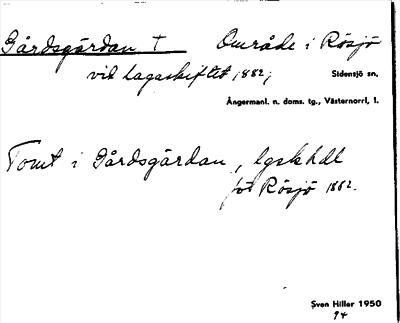 Gårdsgärdan † Område i Rösjö
vid lagaskiftet 1882;
Sidensjö sn,
Ångermanl. n. doms. tg., Västernorrl, l.
Tomt i Gårdsgärdan, lgskhdl
för Rösjö 1882.
Sven Hiller 1950